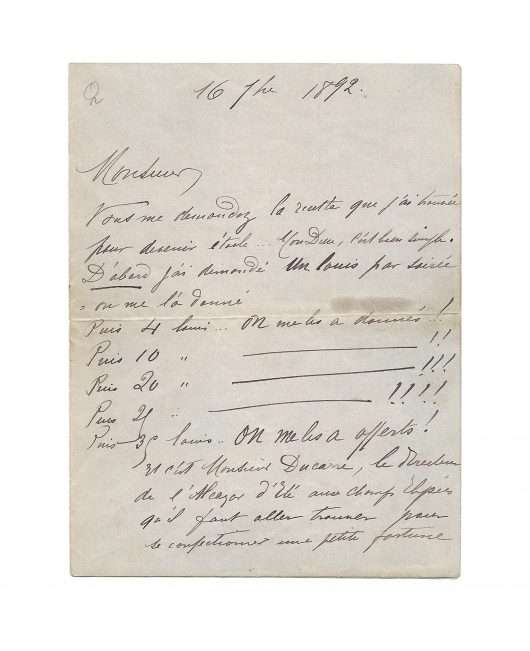 2
16 7bre 1892.
Monsieur,
Vous me demandez la recette que j'ai trouvée
pour devenir étoile... Mon Dieu, c'est bien simple.
D'abord j'ai demandé un louis par soirée
= on me l'a donné
Puis 4 louis... on me les a donnés !
Puis 10 " ———— !!
Puis 20 " ———— !!!
Puis 25 " ———— !!!!
Puis 30 louis.. ON me les a offerts !
Et c'est Monsieur Ducarre, le directeur
de l'Alcazar d'Eté aux champs Elysées
qu'il faut aller trouver pour
se confectionner une petite fortune